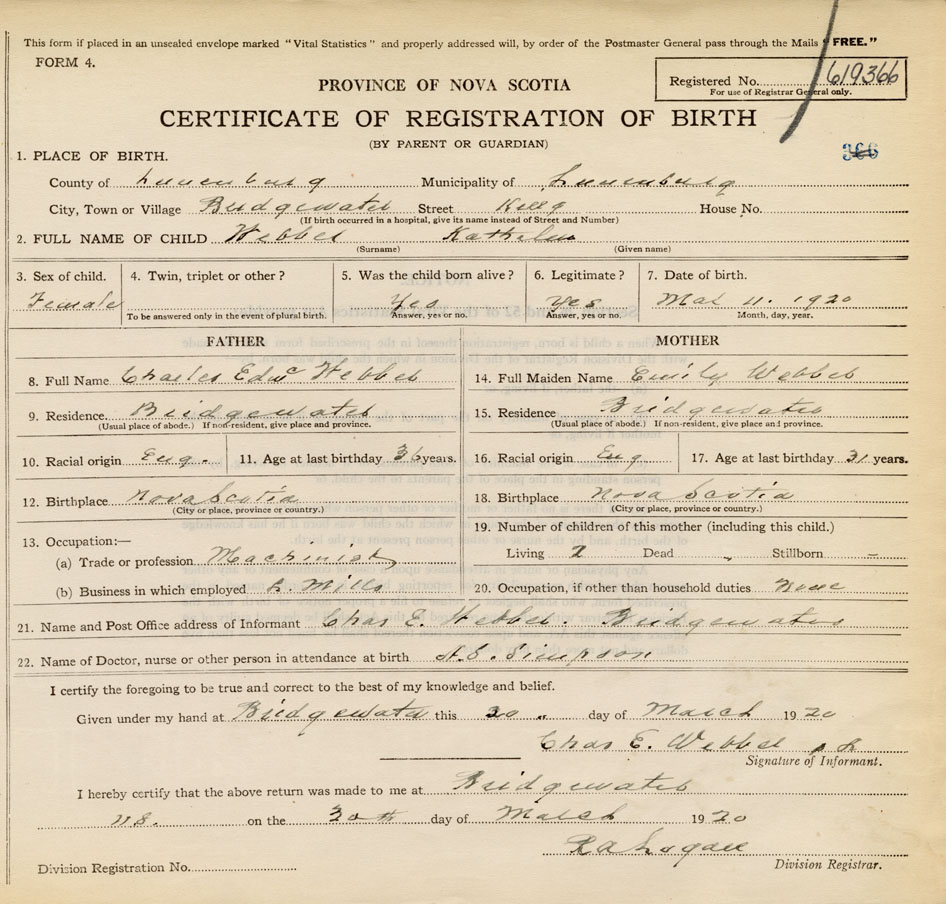 This form if placed in an unsealed envelope marked "Vital Statistics" and properly addressed will, by order of the Postmaster General pass through the Mails "FREE."
FORM 4.
Registered No. 619366
For use of Registrar General only.
PROVINCE OF NOVA SCOTIA
CERTIFICATE OF REGISTRATION OF BIRTH
(BY PARENT OR GUARDIAN)
366
1. PLACE OF BIRTH.
County of Lunenburg Municipality of Lunenburg
City, Town or Village Bridgewater Street King House No.
(If birth occurred in a hospital, give its name instead of Street and Number)
2. FULL NAME OF CHILD Webber Kathleen
(Surname) (Given name)
3. Sex of child. 4. Twin, triplet or other? 5. Was the child born alive? 6. Legitimate? 7. Date of birth.
Female Yes Yes Mar 11. 1920
To be answered only in the event of plural birth. Answer, yes or no. Answer, yes or no. Month, day, year.
FATHER MOTHER
8. Full Name Charles Edwd Webber 14. Full Maiden Name Emily Webber
9. Residence. Bridgewater 15. Residence Bridgewater
(Usual place of abode.) If non-resident, give place and province. (Usual place of abode.) If non-resident, give place and province.
10. Racial origin Eng. 11. Age at last birthday 36 years. 16. Racial origin Eng 17. Age at last birthday 31 years.
12. Birthplace Nova Scotia 18. Birthplace Nova Scotia
(City or place, province or country.) (City or place, province or country.)
13. Occupation:— 19. Number of children of this mother (including this child.)
(a) Trade or profession Machinist Living 2 Dead - Stillborn —
(b) Business in which employed Mills 20. Occupation, if other than household duties None
21. Name and Post Office address of Informant Chas E. Webber. Bridgewater
22. Name of Doctor, nurse or other person in attendance at birth Simpson
I certify the foregoing to be true and correct to the best of my knowledge and belief.
Given under my hand at Bridgewater this 20 day of March 1920
Chas E. Webber
Signature of Informant.
I hereby certify that the above return was made to me at Bridgewater
N.S. on the 20th day of March 1920
Division Registration No. Division Registrar.